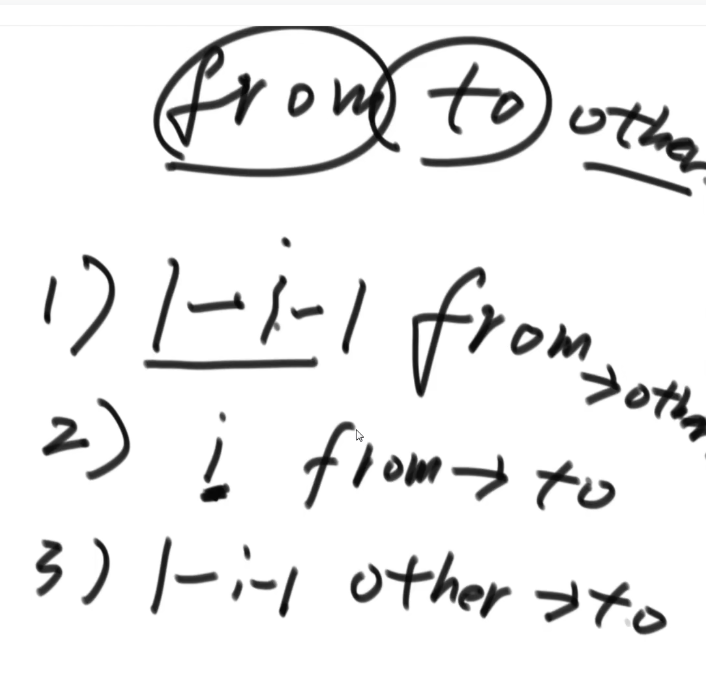 from to other
1) 1-i-1 from→other
2) i from→to
3) 1-i-1 other→to